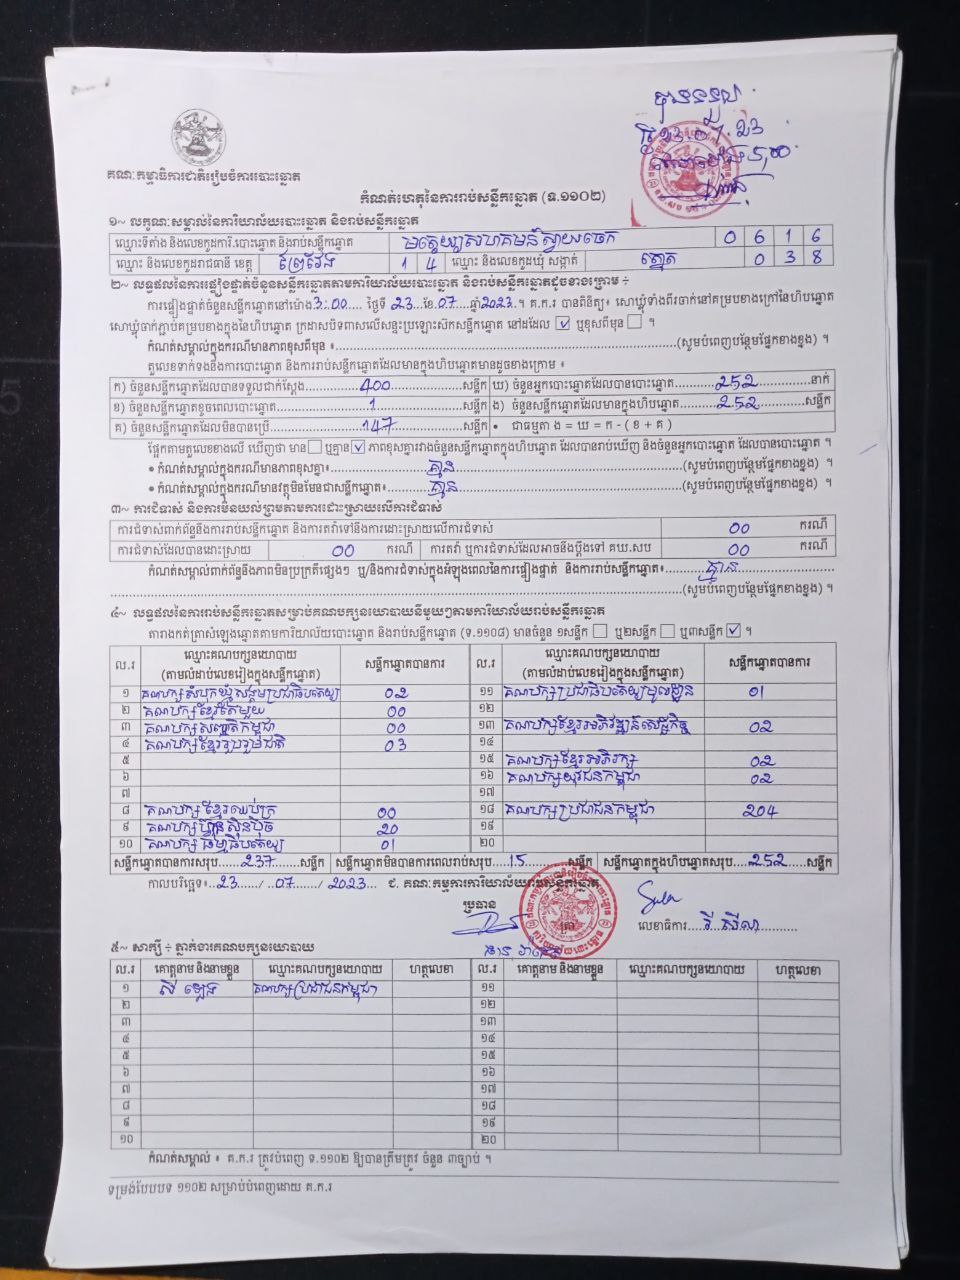 បានទទួល
ថ្ងៃ 23.07.23
គណៈកម្មាធិការជាតិរៀបចំការបោះឆ្នោត
កំណត់ហេតុនៃការរាប់សន្លឹកឆ្នោត (ទ.១១០២)
១~ លក្ខណៈសម្គាល់នៃការិយាល័យបោះឆ្នោត និងរាប់សន្លឹកឆ្នោត
ឈ្មោះទីតាំង និងលេខកូដការិ.បោះឆ្នោត និងរាប់សន្លឹកឆ្នោត មត្តេយ្យសហគមន៍ស្វាយចេក 0 6 1 6
ឈ្មោះ និងលេខកូដរាជធានី ខេត្ត ព្រៃវែង 1 4 ឈ្មោះ និងលេខកូដឃុំ សង្កាត់ ត្នោត 0 3 8
២~ លទ្ធផលនៃការផ្ទៀងផ្ទាត់ចំនួនសន្លឹកឆ្នោតតាមការិយាល័យបោះឆ្នោត និងរាប់សន្លឹកឆ្នោតដូចខាងក្រោម ÷
ការផ្ទៀងផ្ទាត់ចំនួនសន្លឹកឆ្នោតនៅម៉ោង 3:00 ថ្ងៃទី 23 ខែ 07 ឆ្នាំ 2023 ។ គ.ក.រ បានពិនិត្យ៖ សោឃ្លុំទាំងពីរចាក់នៅគម្របខាងក្រៅនៃហិបឆ្នោត
សោឃ្លុំចាក់ភ្ជាប់គម្របខាងក្នុងនៃហិបឆ្នោត ក្រដាសបិទពាសលើសន្ទះប្រឡោះសិកសន្លឹកឆ្នោត នៅដដែល ☑ ឬខុសពីមុន ☐ ។
កំណត់សម្គាល់ក្នុងករណីមានភាពខុសពីមុន ៖ (សូមបំពេញបន្ថែមផ្នែកខាងខ្នង) ។
តួលេខទាក់ទងនឹងការបោះឆ្នោត និងការរាប់សន្លឹកឆ្នោតដែលមានក្នុងហិបឆ្នោតមានដូចខាងក្រោម ៖
ក) ចំនួនសន្លឹកឆ្នោតដែលបានទទួលជាក់ស្តែង 400 សន្លឹក ឃ) ចំនួនអ្នកបោះឆ្នោតដែលបានបោះឆ្នោត 252 នាក់
ខ) ចំនួនសន្លឹកឆ្នោតខូចពេលបោះឆ្នោត 1 សន្លឹក ង) ចំនួនសន្លឹកឆ្នោតដែលមានក្នុងហិបឆ្នោត 252 សន្លឹក
គ) ចំនួនសន្លឹកឆ្នោតដែលមិនបានប្រើ 147 សន្លឹក • ជាធម្មតា ង = ឃ = ក - ( ខ + គ )
ផ្អែកតាមតួលេខខាងលើ ឃើញថា មាន ☐ ឬគ្មាន ☑ ភាពខុសគ្នារវាងចំនួនសន្លឹកឆ្នោតក្នុងហិបឆ្នោត ដែលបានរាប់ឃើញ និងចំនួនអ្នកបោះឆ្នោត ដែលបានបោះឆ្នោត ។
• កំណត់សម្គាល់ក្នុងករណីមានភាពខុសគ្នា៖ គ្មាន (សូមបំពេញបន្ថែមផ្នែកខាងខ្នង) ។
• កំណត់សម្គាល់ក្នុងករណីមានវត្ថុមិនមែនជាសន្លឹកឆ្នោត៖ គ្មាន (សូមបំពេញបន្ថែមផ្នែកខាងខ្នង) ។
៣~ ការជំទាស់ និងការមិនយល់ព្រមតាមការដោះស្រាយលើការជំទាស់
ការជំទាស់ពាក់ព័ន្ធនឹងការរាប់សន្លឹកឆ្នោត និងការតវ៉ាទៅនឹងការដោះស្រាយលើការជំទាស់ 00 ករណី
ការជំទាស់ដែលបានដោះស្រាយ 00 ករណី ការតវ៉ា ឬការជំទាស់ដែលអាចនឹងប្តឹងទៅ គឃ.សប 00 ករណី
កំណត់សម្គាល់ពាក់ព័ន្ធនឹងភាពមិនប្រក្រតីផ្សេងៗ ឬ/និងការជំទាស់ក្នុងអំឡុងពេលនៃការផ្ទៀងផ្ទាត់ និងការរាប់សន្លឹកឆ្នោត៖ គ្មាន
(សូមបំពេញបន្ថែមផ្នែកខាងខ្នង) ។
៤~ លទ្ធផលនៃការរាប់សន្លឹកឆ្នោតសម្រាប់គណបក្សនយោបាយនីមួយៗតាមការិយាល័យរាប់សន្លឹកឆ្នោត
តារាងកត់ត្រាសំឡេងឆ្នោតតាមការិយាល័យបោះឆ្នោត និងរាប់សន្លឹកឆ្នោត (ទ.១១០៨) មានចំនួន ១សន្លឹក ☐ ឬ២សន្លឹក ☐ ឬ៣សន្លឹក ☑ ។
ល.រ ឈ្មោះគណបក្សនយោបាយ (តាមលំដាប់លេខរៀងក្នុងសន្លឹកឆ្នោត) សន្លឹកឆ្នោតបានការ ល.រ ឈ្មោះគណបក្សនយោបាយ (តាមលំដាប់លេខរៀងក្នុងសន្លឹកឆ្នោត) សន្លឹកឆ្នោតបានការ
១ គណបក្សសំបុកឃ្មុំសង្គមប្រជាធិបតេយ្យ 02 ១១ គណបក្សប្រជាធិបតេយ្យមូលដ្ឋាន 01
២ គណបក្សខ្មែរតែមួយ 00 ១២
៣ គណបក្សសញ្ជាតិកម្ពុជា 00 ១៣ គណបក្សខ្មែរអភិវឌ្ឍន៍សេដ្ឋកិច្ច 02
៤ គណបក្សខ្មែររួបរួមជាតិ 03 ១៤
៥ ១៥ គណបក្សខ្មែរអភិរក្ស 02
៦ ១៦ គណបក្សយុវជនកម្ពុជា 02
៧ ១៧
៨ គណបក្សខ្មែរឈប់ក្រ 00 ១៨ គណបក្សប្រជាជនកម្ពុជា 204
៩ គណបក្សហ្វ៊ុនស៊ិនប៉ិច 20 ១៩
១០ គណបក្សធម្មាធិបតេយ្យ 01 ២០
សន្លឹកឆ្នោតបានការសរុប 237 សន្លឹក សន្លឹកឆ្នោតមិនបានការពេលរាប់សរុប 15 សន្លឹក សន្លឹកឆ្នោតក្នុងហិបឆ្នោតសរុប 252 សន្លឹក
កាលបរិច្ឆេទ៖ 23 / 07 / 2023 ជ. គណៈកម្មការការិយាល័យរាប់សន្លឹកឆ្នោត
ប្រធាន
លេខាធិការ វី សីលា
៥~ សាក្សី ÷ ភ្នាក់ងារគណបក្សនយោបាយ
ល.រ គោត្តនាម និងនាមខ្លួន ឈ្មោះគណបក្សនយោបាយ ហត្ថលេខា ល.រ គោត្តនាម និងនាមខ្លួន ឈ្មោះគណបក្សនយោបាយ ហត្ថលេខា
១ គណបក្សប្រជាជនកម្ពុជា ១១
២ ១២
៣ ១៣
៤ ១៤
៥ ១៥
៦ ១៦
៧ ១៧
៨ ១៨
៩ ១៩
១០ ២០
កំណត់សម្គាល់ ៖ គ.ក.រ ត្រូវបំពេញ ទ.១១០២ ឱ្យបានត្រឹមត្រូវ ចំនួន ៣ច្បាប់ ។
ទម្រង់បែបបទ ១១០២ សម្រាប់បំពេញដោយ គ.ក.រ